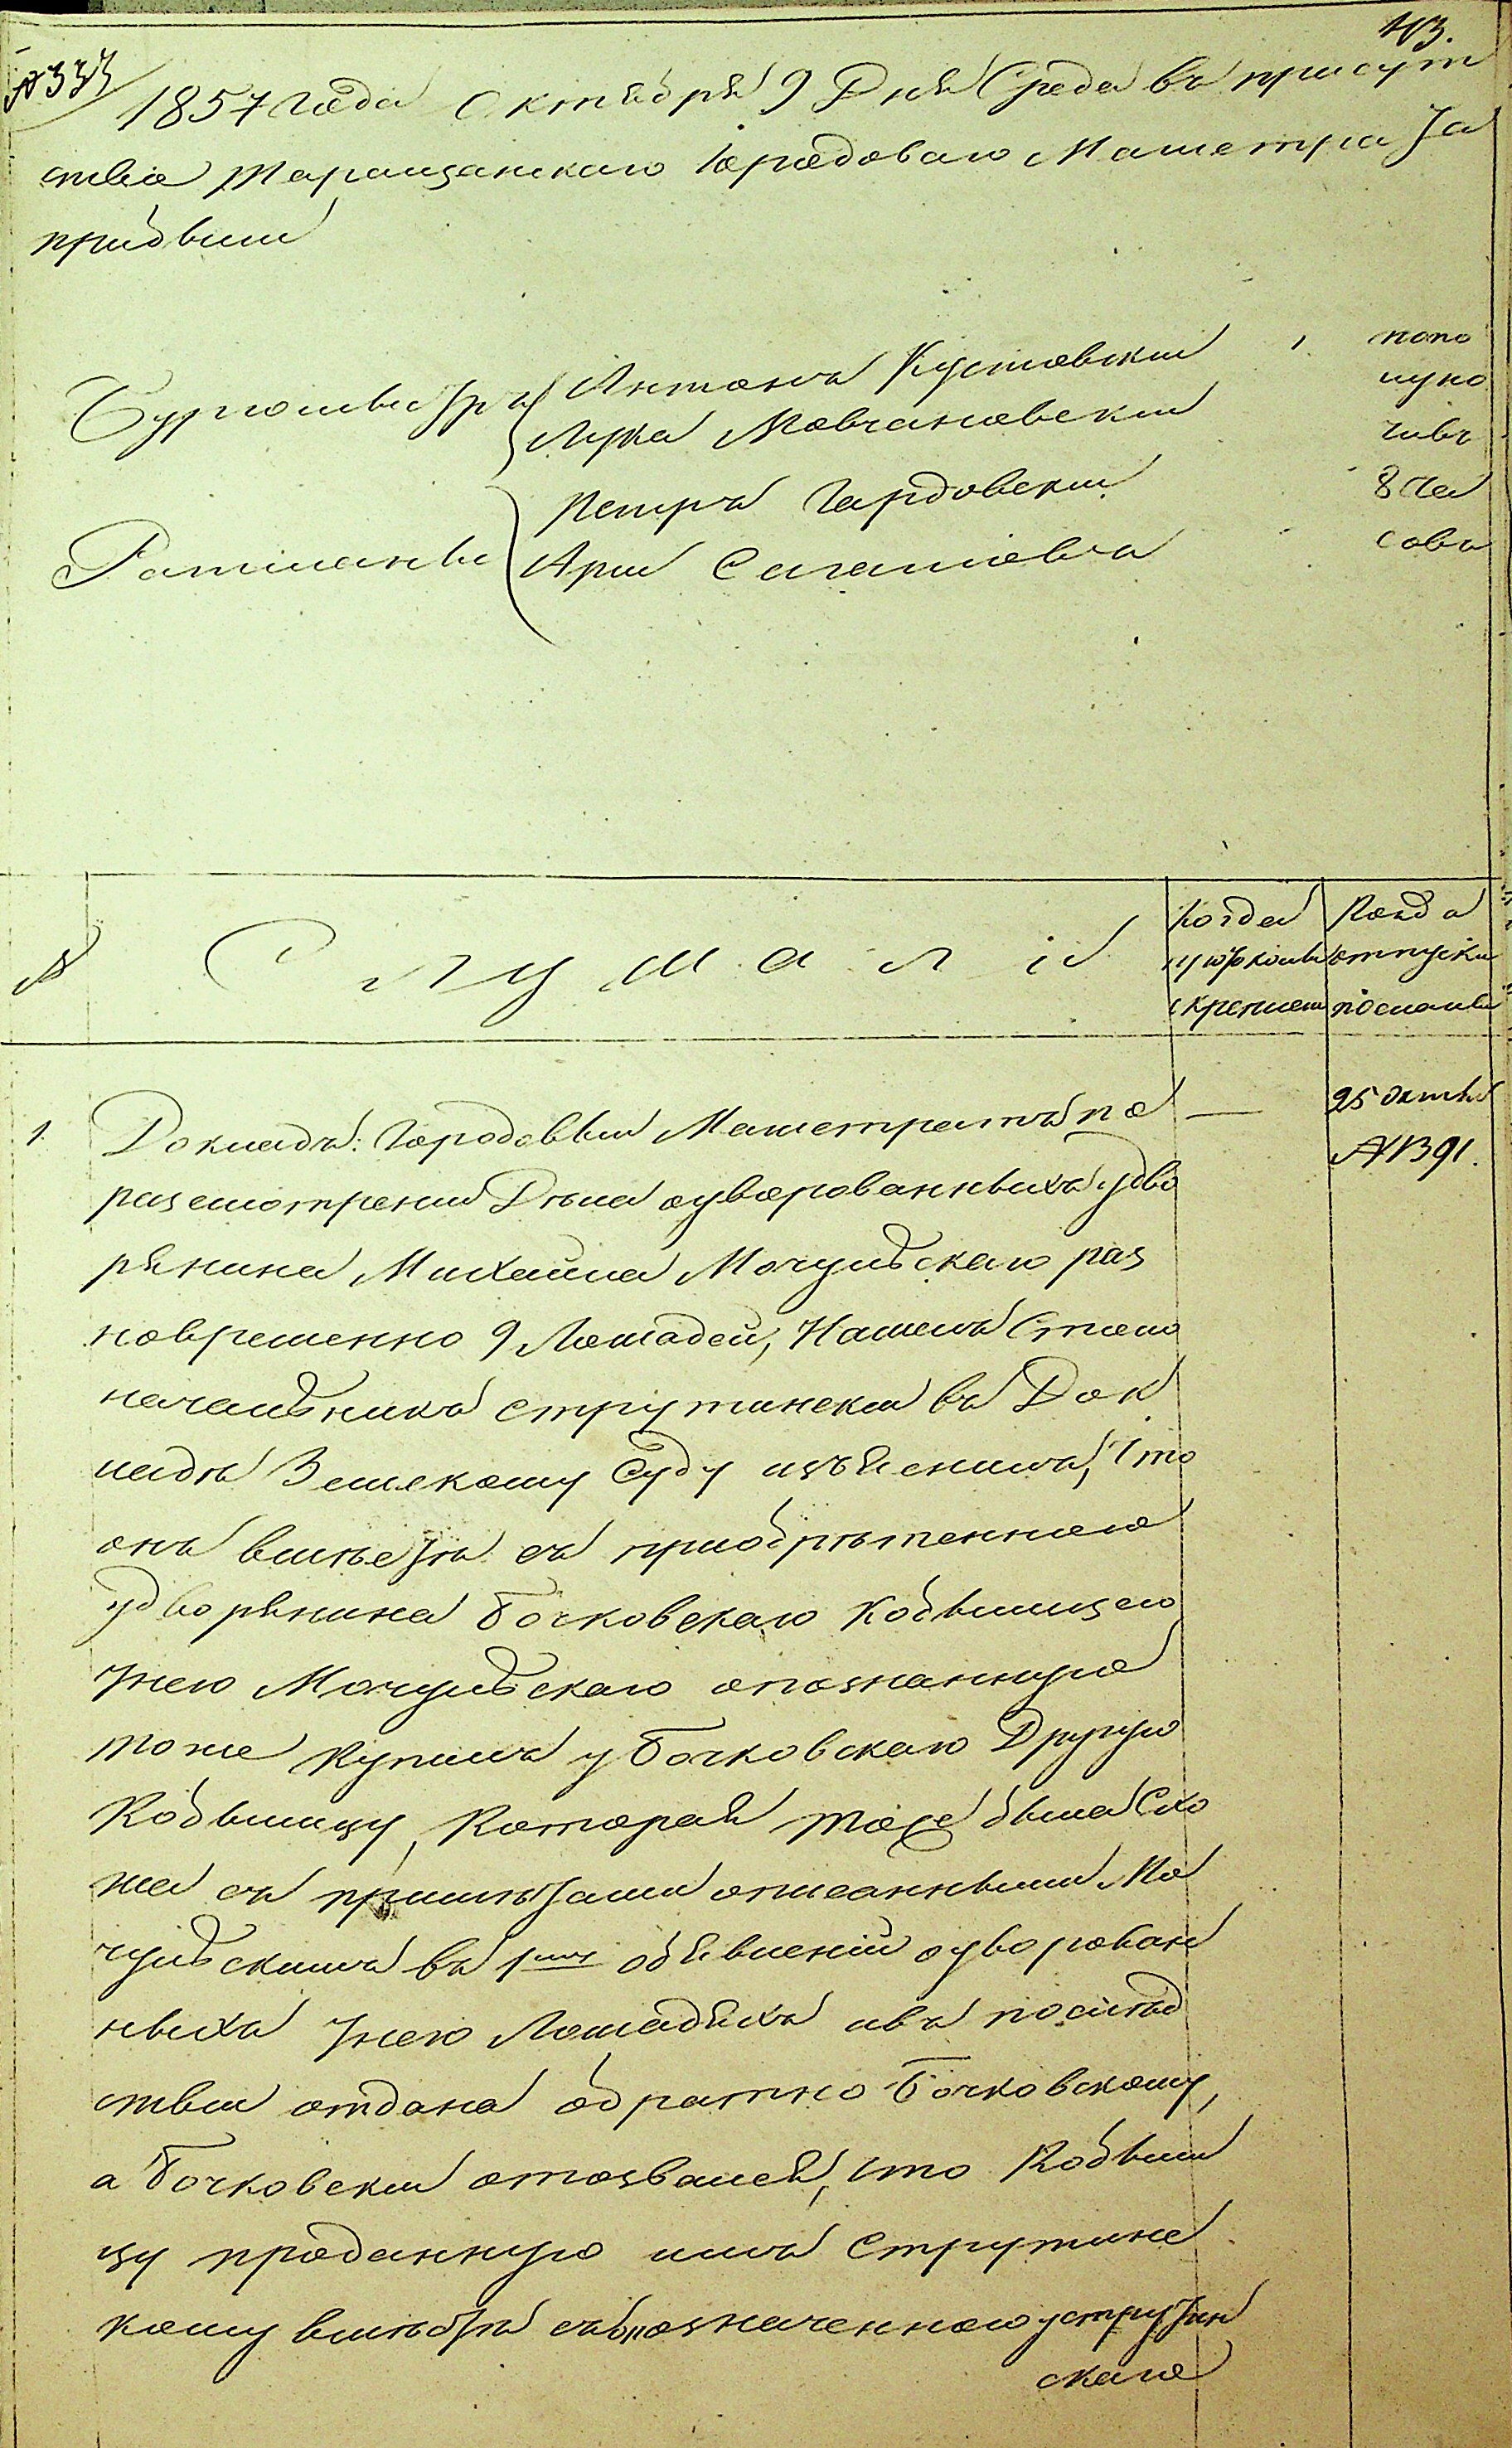 43.
№ 333
1857 года Октября 9 Дня Среда въ присут
ствіе Таращанскаго Городоваго Магистрата за
прибыли
Бургомистры Антонъ Кустовскій
Лука Мовчановскій
Ратманы Петръ Гардовскій
Арій
1. попо
луно
чивъ
8 ча
совъ
№ Слушалі
Когда журналы скреплены
Когда отпуски посланы
1. Докладъ: Городовый Магистратъ по
разсмотреніи Дѣла оуворованныхъ удво
рянина Михаила Мочульскаго раз
новременно 9 Лошадей, Нашелъ Стано
начальникъ Струтинскій въ Док
ладѣ Земскому Суду изъяснилъ, что
онъ вмѣстѣ съ приобрѣтенною
удворянина Бочковскаго Кобылицею
унего Мочульскаго опознанную
тоже купилъ у Бочковскаго Другую
Кобылицу, Которая тоже была Схо
жа съ примѣтами описанными Мо
чульскимъ въ 1мъ объявленіи оуворован
ныхъ унего Лошадяхъ ивъ послѣд
ствіи отдана обратно Бочковскому,
а Бочковскій отозвался, что Кобыли
цу проданную имъ Струтинс
кому вмѣстѣ съ опозначенною у Струтин
скаго
25 Октяб
№ 1391.